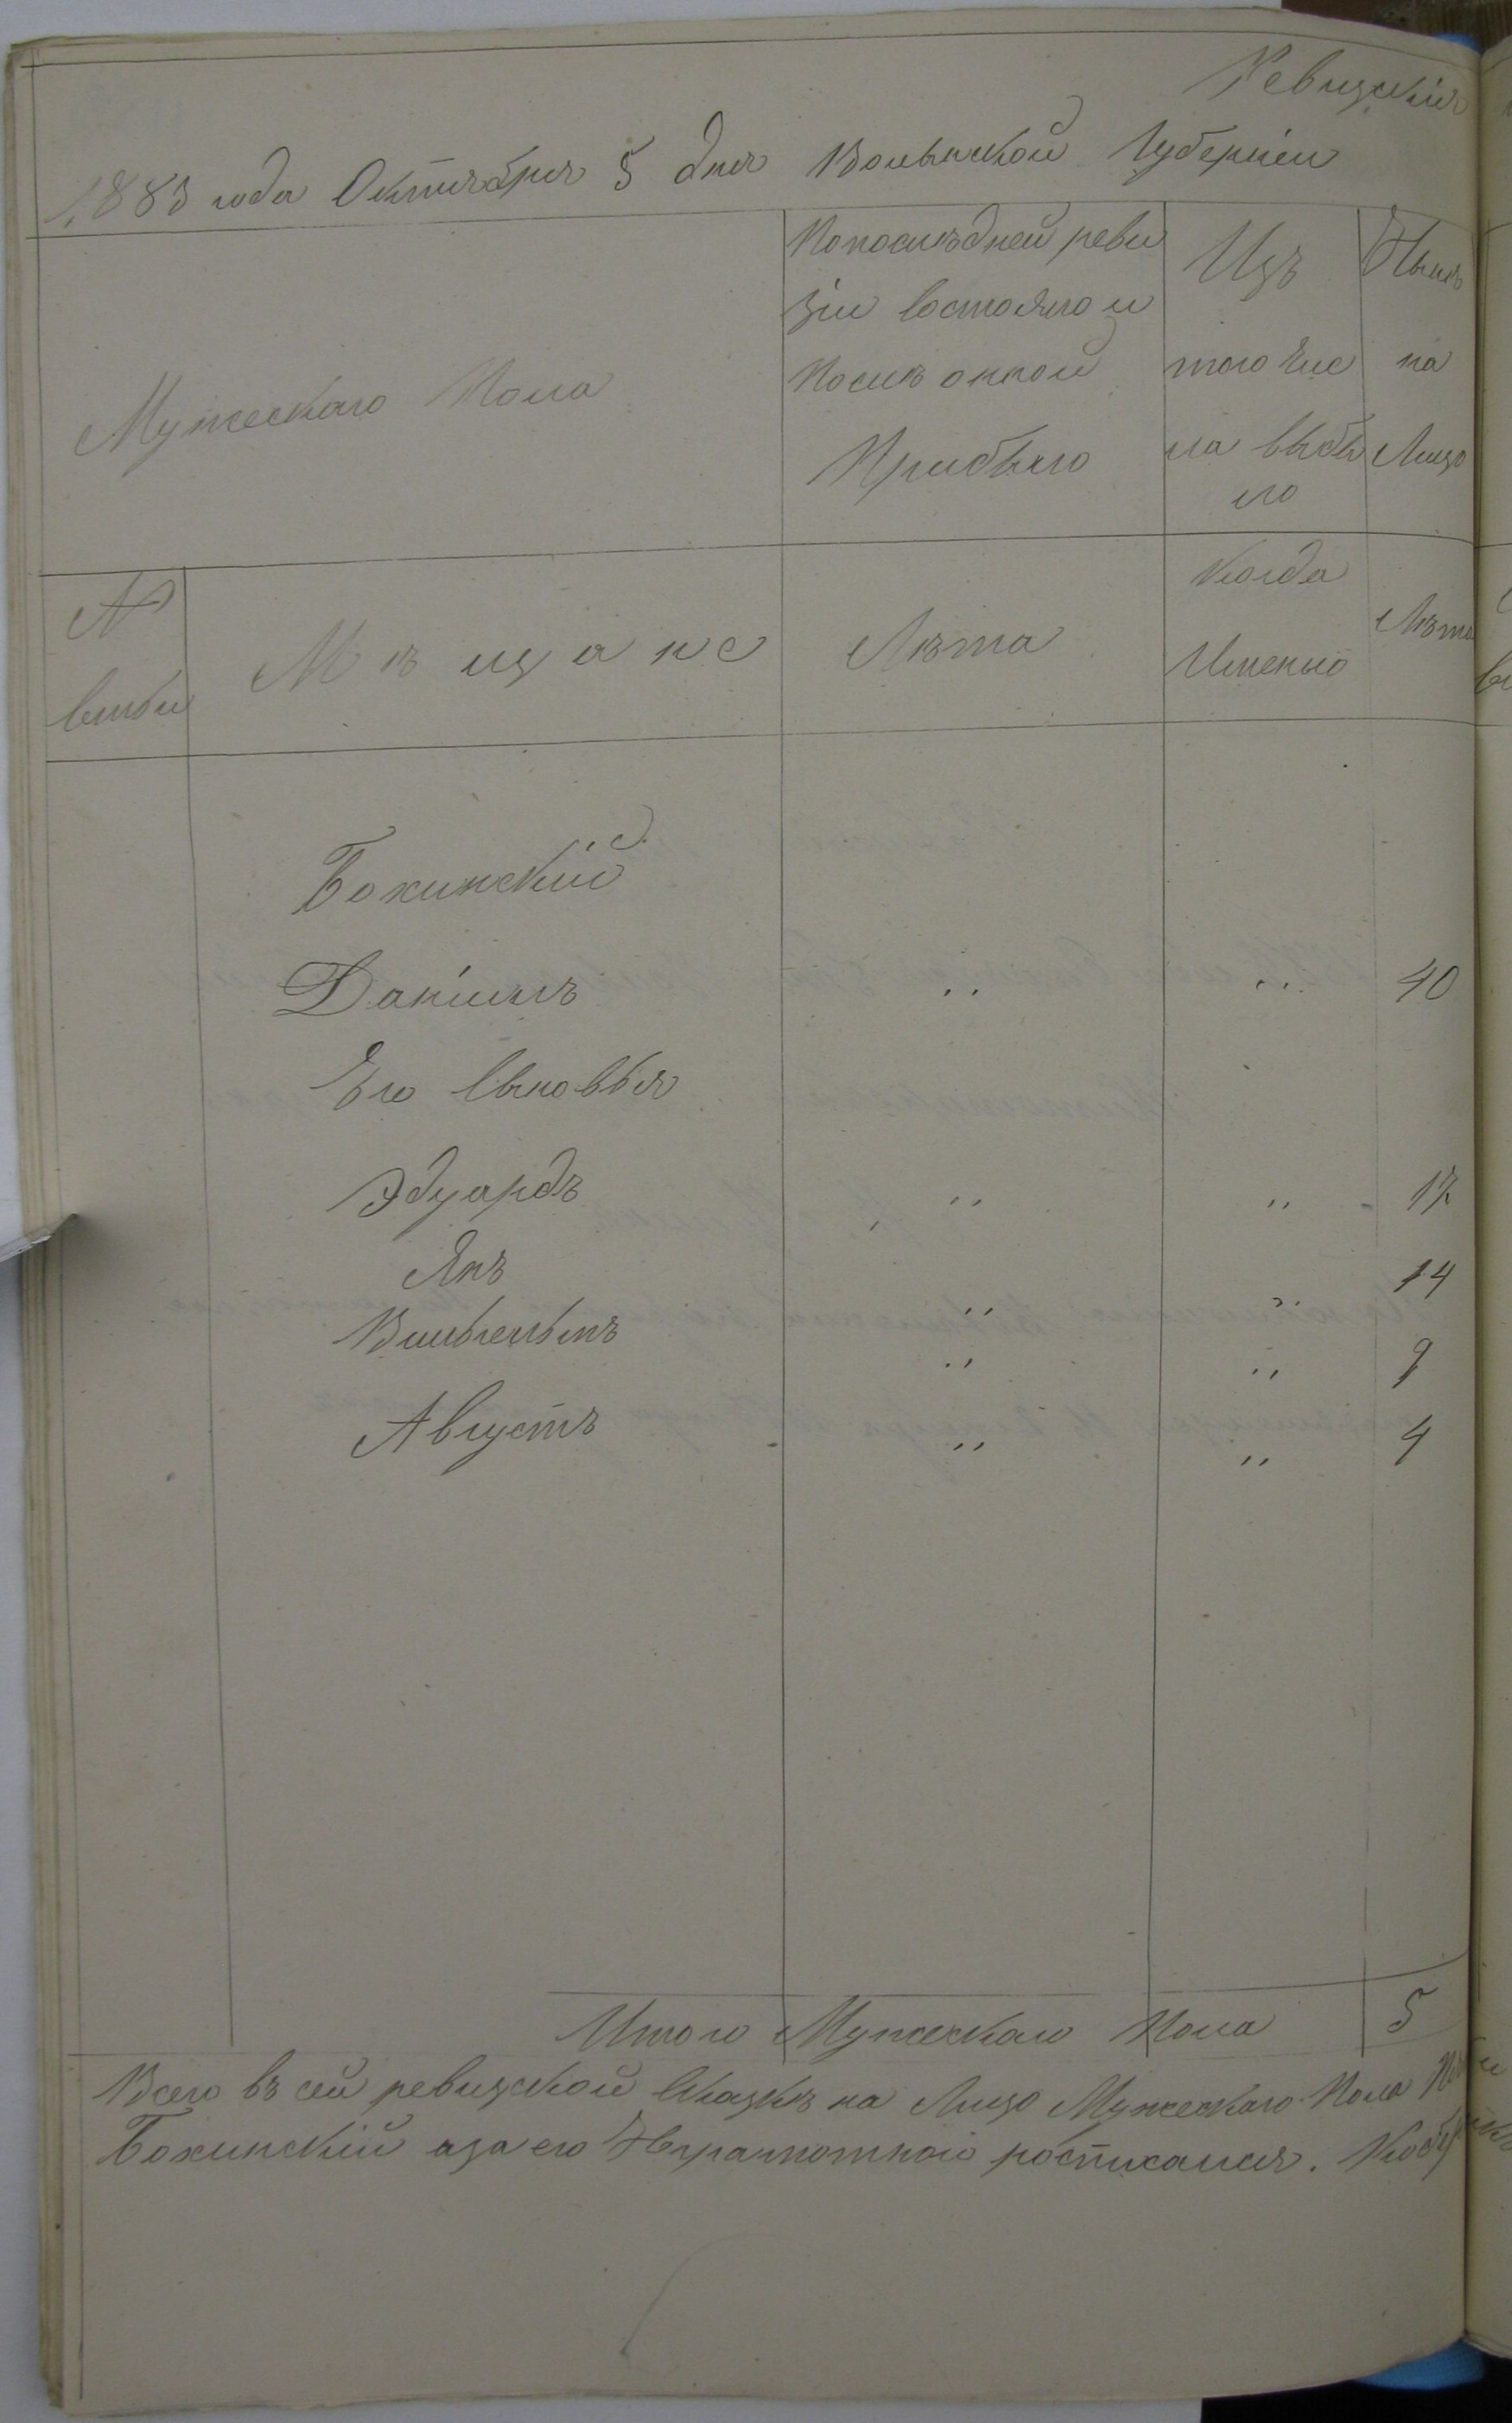 Ревизскія
1883 года Октября 5 дня Волынской Губерніи
Мужескаго Пола
Попослѣдней реви
зіи состояло и
После оной
Прибыло
Изъ
того Чис
ла выбы
ло
Нынѣ
на
Лицо
№
семьи
Мѣщане
Лѣта
Когда
Именно
Лѣта
Бохинскій
Даніилъ " " 40
Его Сыновья
Эдуардъ " " 17
Янъ " " 14
Вильгельмъ " " 9
Августъ " " 4
Итого Мужескаго Пола 5
Всего въ сей ревизской Сказкѣ на Лицо Мужескаго Пола
Бохинскій аза его Неграмотнаго росписался.